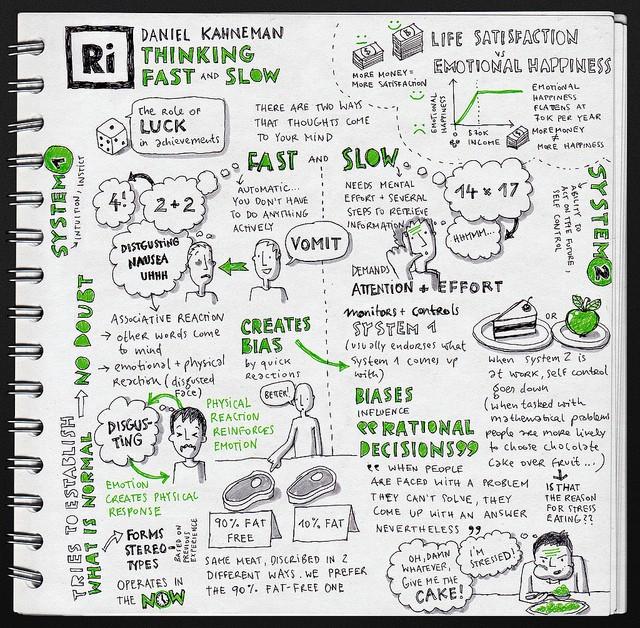 Ri
DANIEL KAHNEMAN
THINKING
FAST AND SLOW
The role of
LUCK
in achievements
THERE ARE TWO WAYS
THAT THOUGHTS COME
TO YOUR MIND
MORE MONEY=
MORE SATISFACTION
LIFE SATISFACTION
VS
EMOTIONAL HAPPINESS
EMOTIONAL
HAPPINESS
$70K
INCOME
EMOTIONAL
HAPPINESS
FLATENS AT
70K PER YEAR
MORE MONEY
≠
MORE HAPPINESS
FAST AND SLOW
SYSTEM 1
INTUITION, INSTINCT
4!
2+2
AUTOMATIC...
YOU DON'T HAVE
TO DO ANYTHING
ACTIVELY
DISGUSTING
NAUSEA
UHHH
VOMIT
ASSOCIATIVE REACTION
→ other words come
to mind
→ emotional + physical
Reaction (disgusted
Face)
CREATES
BIAS
by quick
reactions
DISGUS-
TING
PHYSICAL
REACTION
REINFORCES
EMOTION
EMOTION
CREATES PHYSICAL
RESPONSE
TRIES TO ESTABLISH
WHAT IS NORMAL → NO DOUBT
FORMS
STEREO-
TYPES
BASED ON
PREVIOUS
EXPERIENCE
OPERATES IN
THE NOW
BETTER!
90% FAT
FREE
10% FAT
SAME MEAT, DISCRIBED IN 2
DIFFERENT WAYS. WE PREFER
THE 90% FAT-FREE ONE
SYSTEM 2
ABILITY TO
ACT ON THE FUTURE,
SELF CONTROL
NEEDS MENTAL
EFFORT + SEVERAL
STEPS TO RETRIEVE
INFORMATION
14 x 17
HHMM...
DEMANDS
ATTENTION + EFFORT
monitors + controls
SYSTEM 1
(usually endorses what
System 1 comes up
with)
OR
when system 2 is
at work, self control
goes down
(when tasked with
mathematical problems
people are more likely
to choose chocolate
cake over fruit...)
↓
IS THAT
THE REASON
FOR STRESS
EATING??
BIASES
INFLUENCE
"RATIONAL
DECISIONS"
" WHEN PEOPLE
ARE FACED WITH A PROBLEM
THEY CAN'T SOLVE, THEY
COME UP WITH AN ANSWER
NEVERTHELESS "
OH, DAMN
WHATEVER,
GIVE ME THE
CAKE!
I'M
STRESSED!